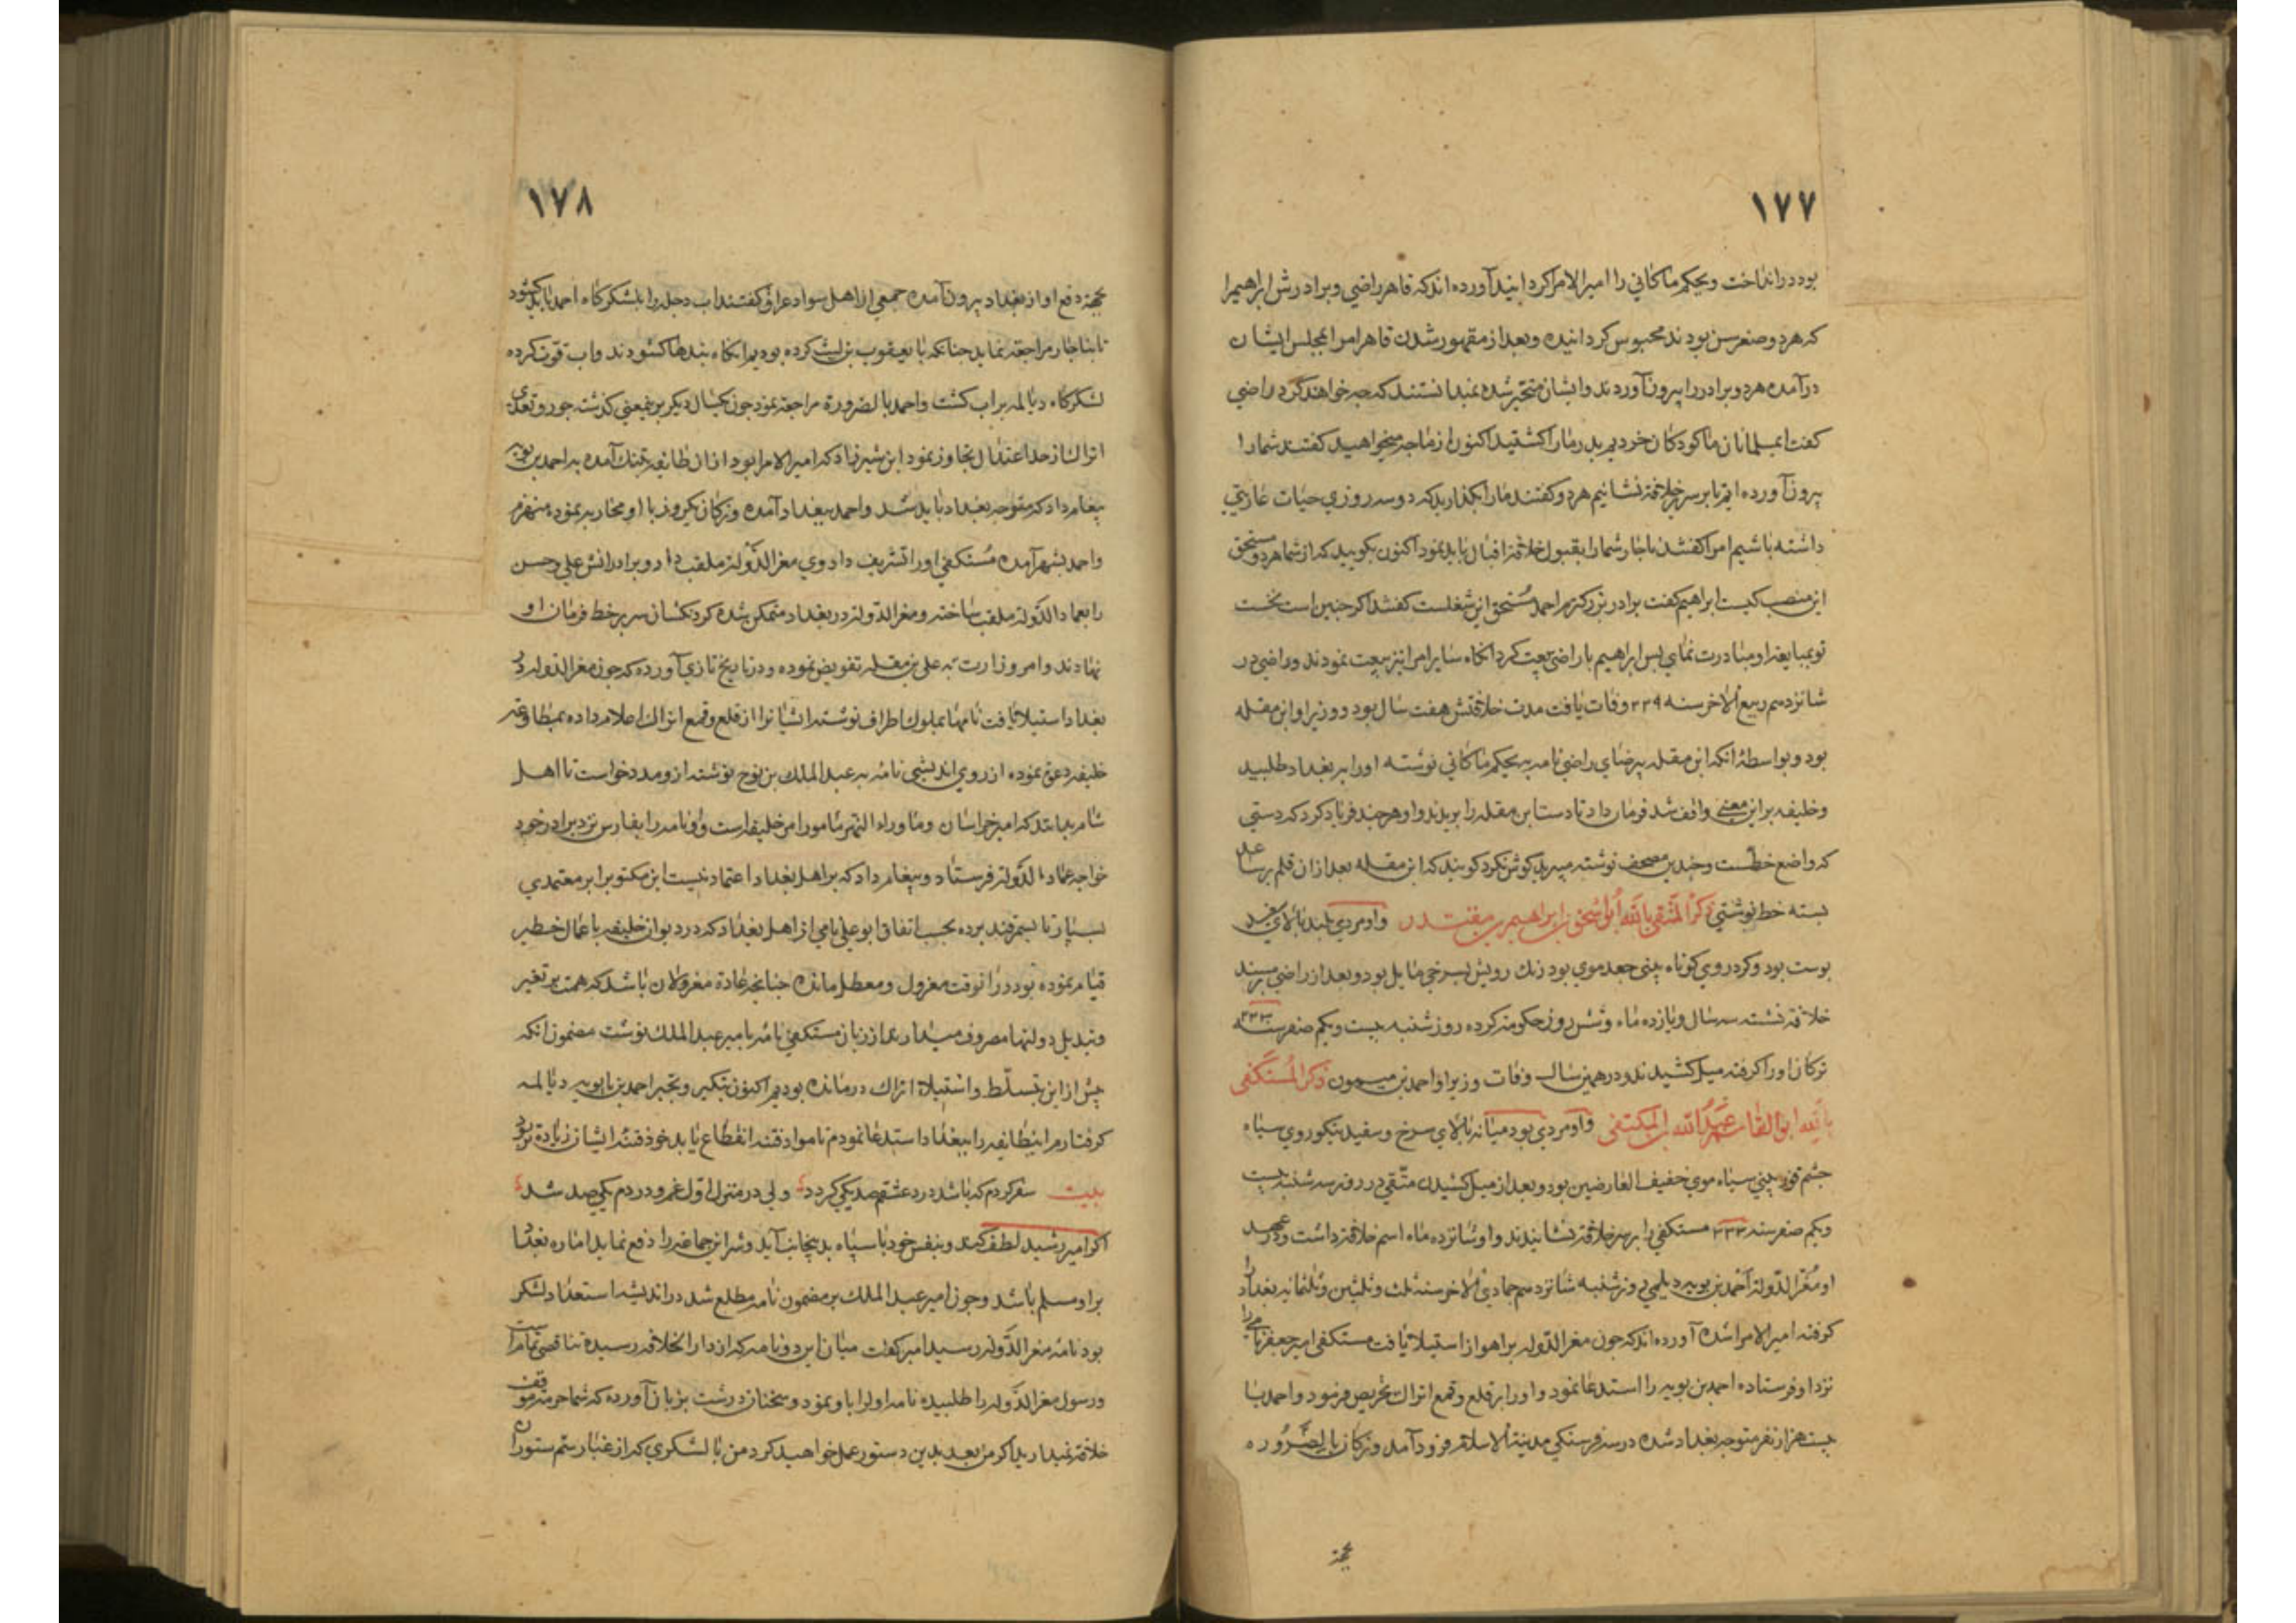 ١٧٧
بود در انداخت و بحکم ماکانی را امیر الامرا کردانید آورده اند که قاهر راضی و برادرش ابراهیم را
که هر دو صغر سن بودند محبوس کردانیده و بعد از مقهور شدن قاهر امرا بمجلس ایشان
درآمده هر دو برادر را بیرون آوردند و ایشان متحیر شده نمیدانستند که چه خواهند کرد راضی
کفت ای مسلمانان ما کودکان خردیم پدر ما را کشتید اکنون از ما چه میخواهید کفتند شما را
بیرون آورده ایم تا بر سریر خلافة نشانیم هر دو کفتند ما را بکذارید که دو سه روزی حیات عاریتی
داشته باشیم امرا کفتند ناچار شما را بقبول خلافة اقبال باید نمود اکنون بکویید که از شما هر دو مستحق
این منصب کیست ابراهیم کفت برادر بزرکترم احمد مستحق این شغلست کفتند اکر چنین است نخست
تو بمبایعة او مبادرت نمای پس ابراهیم با راضی بیعت کرد آنکاه سایر امرا نیز بیعت نمودند و راضی در
شانزدهم ربیع الاخر سنه ٣٢٩ وفات یافت مدت خلافتش هفت سال بود و وزیر او ابن مقله
بود و بواسطهٔ آنکه ابن مقله بی رضای راضی نامه به بحکم ماکانی نوشته او را ببغداد طلبید
و خلیفه بر این معنی واقف شد فرمان داد تا دست ابن مقله را بریدند و او هر چند فریاد کرد که دستی
که واضع خطست و چندین مصحف نوشته میرید کوش نکرد کویند که ابن مقله بعد از آن قلم بر ساعد
بسته خط نوشتی ذکر المتقی بالله ابو اسحق ابراهیم بن مقتدر و او مردی بلند بالای سفید
پوست بود و کرد روی کوتاه بینی جعد موی بود رنک رویش بسرخی مایل بود و بعد از راضی بر مسند
خلافة نشسته سه سال و یازده ماه و شش روز حکومة کرده روز شنبه بیست و یکم صفر سنه ٣٣٣
ترکان او را کرفته میل کشیدند و در همین سال وفات و وزیر او احمد بن میمون ذکر المستکفی
بالله ابو القاسم عبد الله بن المکتفی و او مردی بود میانه بالای سرخ و سفید نیکو روی سیاه
چشم بینی سیاه موی خفیف العارضین بود و بعد از میل کشیدن متقی در روز سه شنبه بیست
و یکم صفر سنه ٣٣٣ مستکفی را بر سریر خلافة نشانیدند و او شانزده ماه اسم خلافة داشت و در عهد
او معز الدولة احمد بن بویه دیلمی روز شنبه شانزدهم جمادی الاخر سنه ثلث و ثلثین و ثلثمائه بغداد را
کرفته امیر الامرا شده آورده اند که چون معز الدوله بر اهواز استیلا یافت مستکفی امیر جعفر نامی را
نزد او فرستاده احمد بن بویه را استدعا نمود و او را بر قلع و قمع اتراک تحریص فرمود و احمد با
بیست هزار نفر متوجه بغداد شده در سه فرسنکی مدینة الاسلام فرود آمد و ترکان بالضروره
بجهة
١٧٨
بجهة دفع او از بغداد بیرون آمده جمعی از اهل سواد عراق کفتند آب دجله را بلشکرکاه احمد باید کشود
تا بناچار مراجعة نماید چنانکه با یعقوب بن لیث کرده بودیم آنکاه بندها کشودند و آب قوت کرده
لشکرکاه دیالمه پر آب کشت و احمد بالضرورة مراجعة نمود چون یکسال دیکر برینمعنی کذشت جور و تعدی
اتراک از حد اعتدال تجاوز نمود ابن شیرزاد که امیر الامرا بود از آن طایفه بتنک آمده به احمد بن بویه
پیغام داد که متوجه بغداد باید شد و احمد ببغداد آمده و ترکان یکروز با او محاربه نموده منهزم
و احمد بشهر آمده مستکفی او را تشریف داد وی معز الدولة ملقب داد و برادرانش علی و حسن
را بعماد الدولة ملقب ساخته و معز الدوله در بغداد متمکن شده کردنکشان سر بر خط فرمان او
نهادند و امر وزارت به علی بن مقله تفویض نموده و در تاریخ تازی آورده که چون معز الدوله در
بغداد استیلا یافت نامها بملوک اطراف نوشته ایشان را از قلع و قمع اتراک اعلام داده بمطاوعة
خلیفه دعوی نموده از روی اندیشی نامه به عبد الملک بن نوح نوشته ازو مدد خواست تا اهل
شام بدانند که امیر خراسان و ما وراء النهر مامور امر خلیفه است و او نامه را بفارس نزد برادر خود
خواجه عماد الدوله فرستاد و پیغام داد که بر اهل بغداد اعتماد نیست این مکتوب را بر معتمدی
بسپار تا بسمرقند برده بحسب اتفاق ابو علی نامی از اهل بغداد که در دیوان خلیفه باعمال خطیر
قیام نموده بود در آنوقت معزول و معطل مانده چنانچه عادة معزولان باشد که همت بر تغیر
و تبدیل دولتها مصروف میدارند از زبان مستکفی نامه بامیر عبد الملک نوشت مضمون آنکه
پیش از این بتسلط و استیلاء اتراک درمانده بودیم اکنون بتکبر و تجبر احمد بن بابویه دیالمه
کرفتاریم این طایفه را ببغداد استدعا نمودم تا مواد فتنه انقطاع یابد خود فتنه ایشان زیادة تر بود
بیت سفر کردم که باشد درد عشقم صد یکی کردد ولی در منزل اول غم و دردم یکی صد شد
اکر امیر رشید لطف کند و بنفس خود با سپاه بدینجانب آید و شر این جماعة را دفع نماید امارة بغداد
بر او مسلم باشد و چون امیر عبد الملک بر مضمون نامه مطلع شد در اندیشه استعداد لشکر
بود نامه معز الدوله رسید امیر کفت میان این دو نامه که از دار الخلافة رسیده تناقض تمامست
و رسول معز الدوله را طلبیده نامه اول را باو نمود و سخنان درشت بزبان آورده که شما حرمة موقف
خلافة نمیدارید اکر من بعد بدین دستور عمل خواهید کرد من با لشکری که از غبار سم ستوران